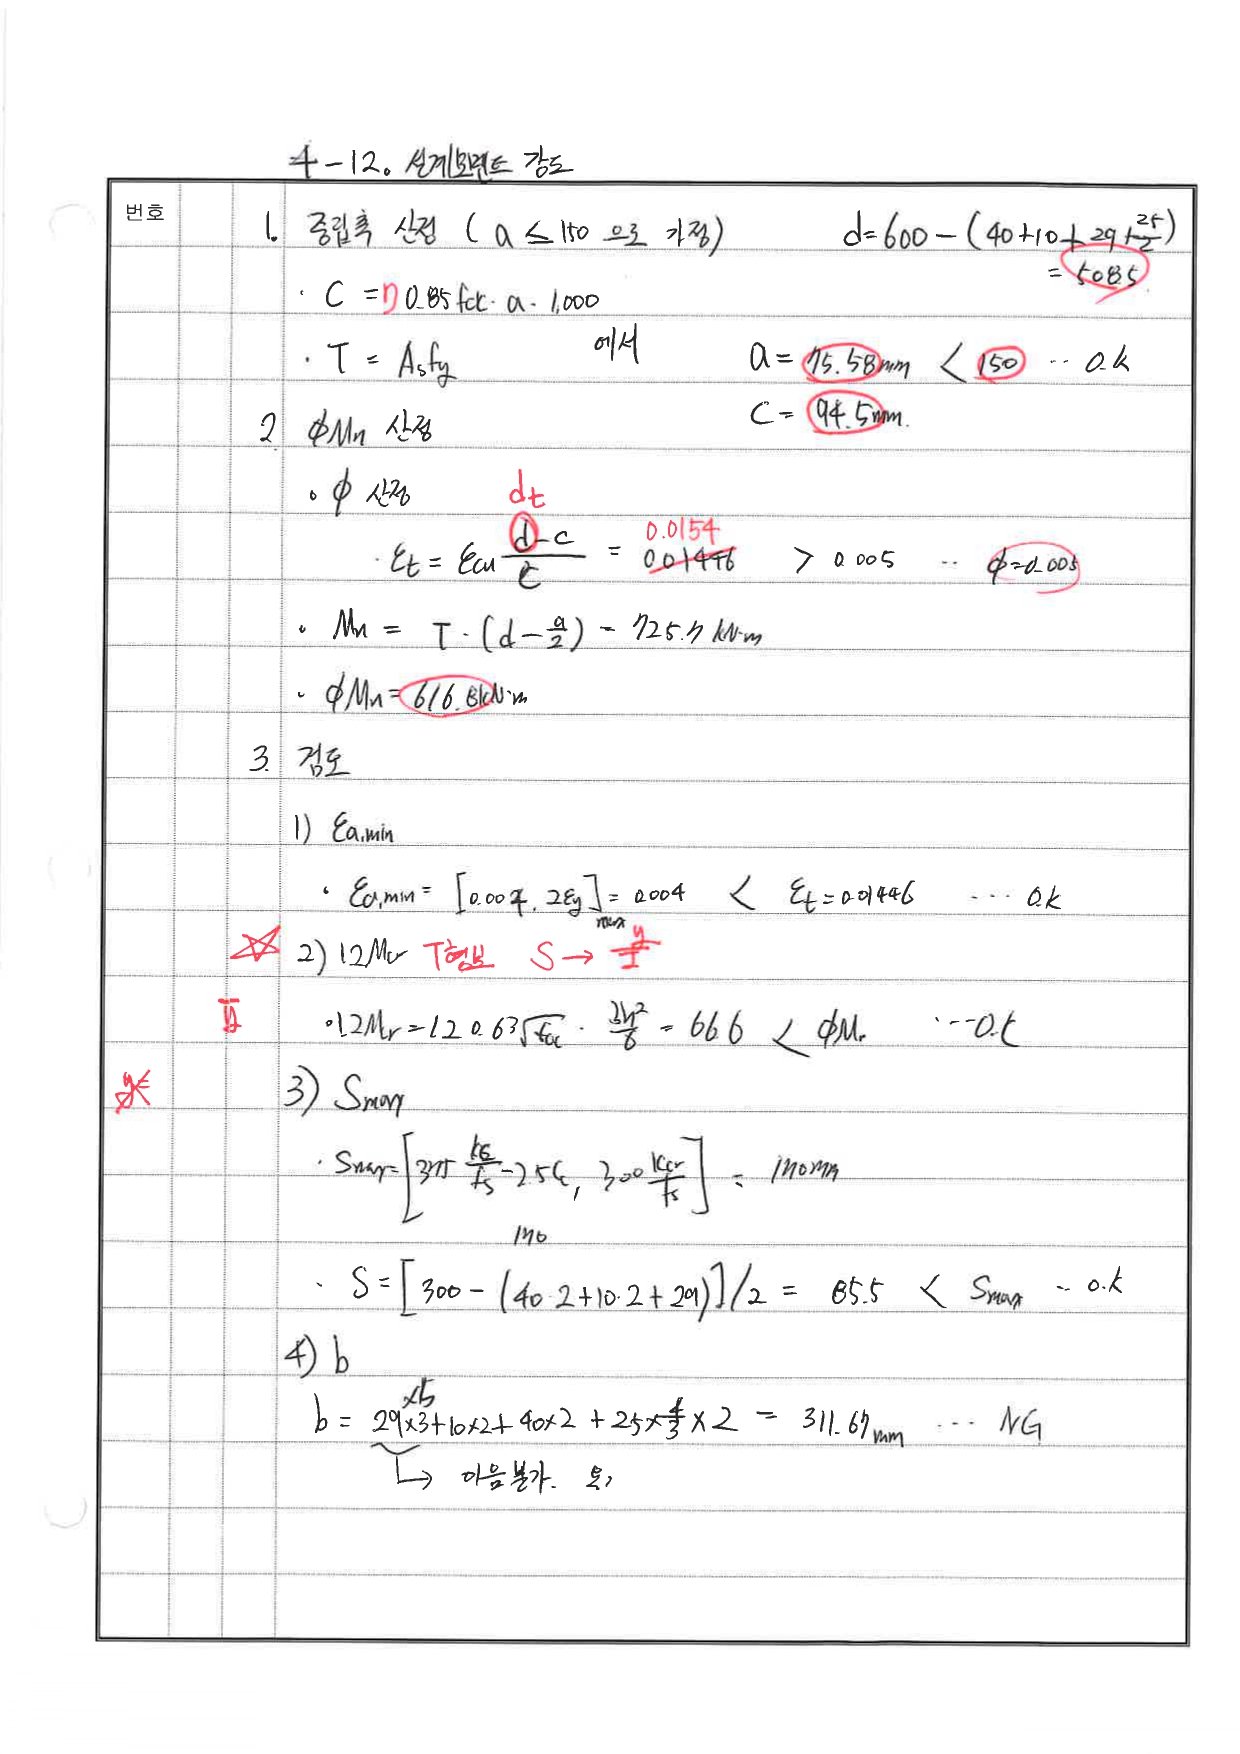 4-12. 설계모멘트 강도
번호
1. 중립축 산정 ( a ≤ 150 으로 가정) d=600-(40+10+29+25/2)
= 508.5
· C = η 0.85 fck · a · 1,000
· T = Asfy 에서 a = 75.58mm < 150 ·· O.K
C = 94.5mm.
2 φMn 산정
· φ 산정 dt
· εt = εcu (d-c)/c = 0.0154 0.01446 > 0.005 ·· φ=0.005
· Mn = T·(d-a/2) = 725.7 kN·m
· φMn = 616.8kN·m
3. 검토
1) εa,min
· εa,min = [0.004, 2εy]max = 0.004 < εt=0.01446 ··· O.K
2) 1.2Mcr T형보 S → y/I
· 1.2Mr = 1.2 0.63√fck · bh²/6 = 66.6 < φMn ···O.K
3) Smax
· Smax=[375 kcr/fs - 2.5Cc, 300 kcr/fs] = 170mm
170
· S = [300-(40·2+10·2+29)]/2 = 85.5 < Smax ·· O.K
4) b
×1.5
b = 29×3+10×2+40×2+25×4/3×2 = 311.67mm ··· NG
↳ 이음불가.